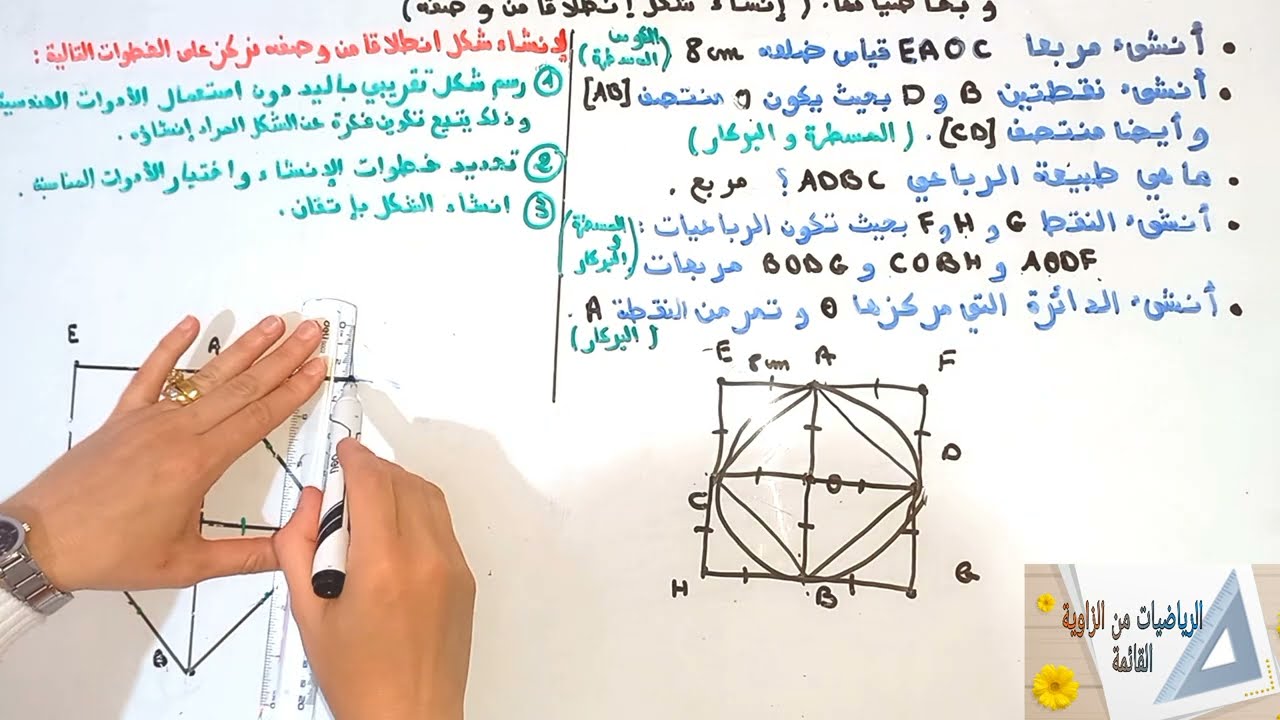 و بخاصياتها. ( إنشاء شكل إنطلاقا من وصفه )
• أنشىء مربعا EAOC قياس ضلعه 8cm ( الكوس المسطرة )
• أنشىء نقطتين B و D بحيث يكون O منتصف [AB]
وأيضا منتصف [CD]. ( المسطرة و البركار )
• ما هي طبيعة الرباعي ADBC ؟ مربع .
• أنشىء النقط G و H و F بحيث تكون الرباعيات :
AODF و COBH و BODG مربعات ( المسطرة و البركار )
• أنشىء الدائرة التي مركزها O و تمر من النقطة A .
( البركار )
لإنشاء شكل انطلاقا من وصفه نركز على الخطوات التالية :
① رسم شكل تقريبي باليد دون استعمال الأدوات الهندسية
وذلك يتيح تكوين فكرة عن الشكل المراد إنشاؤه .
② تحديد خطوات الإنشاء واختيار الأدوات المناسبة .
③ انشاء الشكل بإتقان .
E 8cm A F
C O D
H B G
E A
B
الرياضيات من الزاوية
القائمة